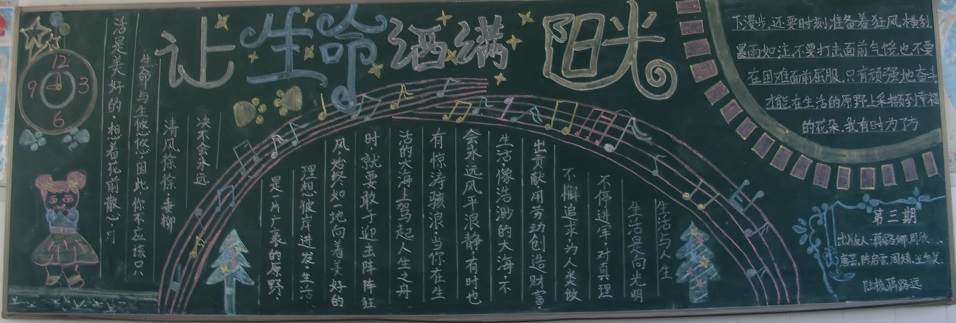 让生命洒满阳光
12
3
6
9
生活与人生
生活是向光明
不停进军,对真理
不懈追求,为人类做
出贡献,用劳动创造财富,
生活像浩渺的大海,不
会永远风平浪静,有时也
有惊涛骇浪,当你在生
活的大海上驾起人生之舟
时,就要敢于迎击阵阵狂
风,始终如一地向着美好的
理想彼岸进发,生活
是一片广袤的原野,
决不会永远
清风徐徐,垂柳
生命与生悠悠,因此,你不应该只
活是美好的,想着花前散心,月
下漫步,还要时刻准备着狂风拂到
暴雨如注,不要打击面前气馁也不要
在困难面前屈服,只有顽强地奋斗
才能在生活的原野上采撷到幸福
的花朵,我有时为了方
第三期